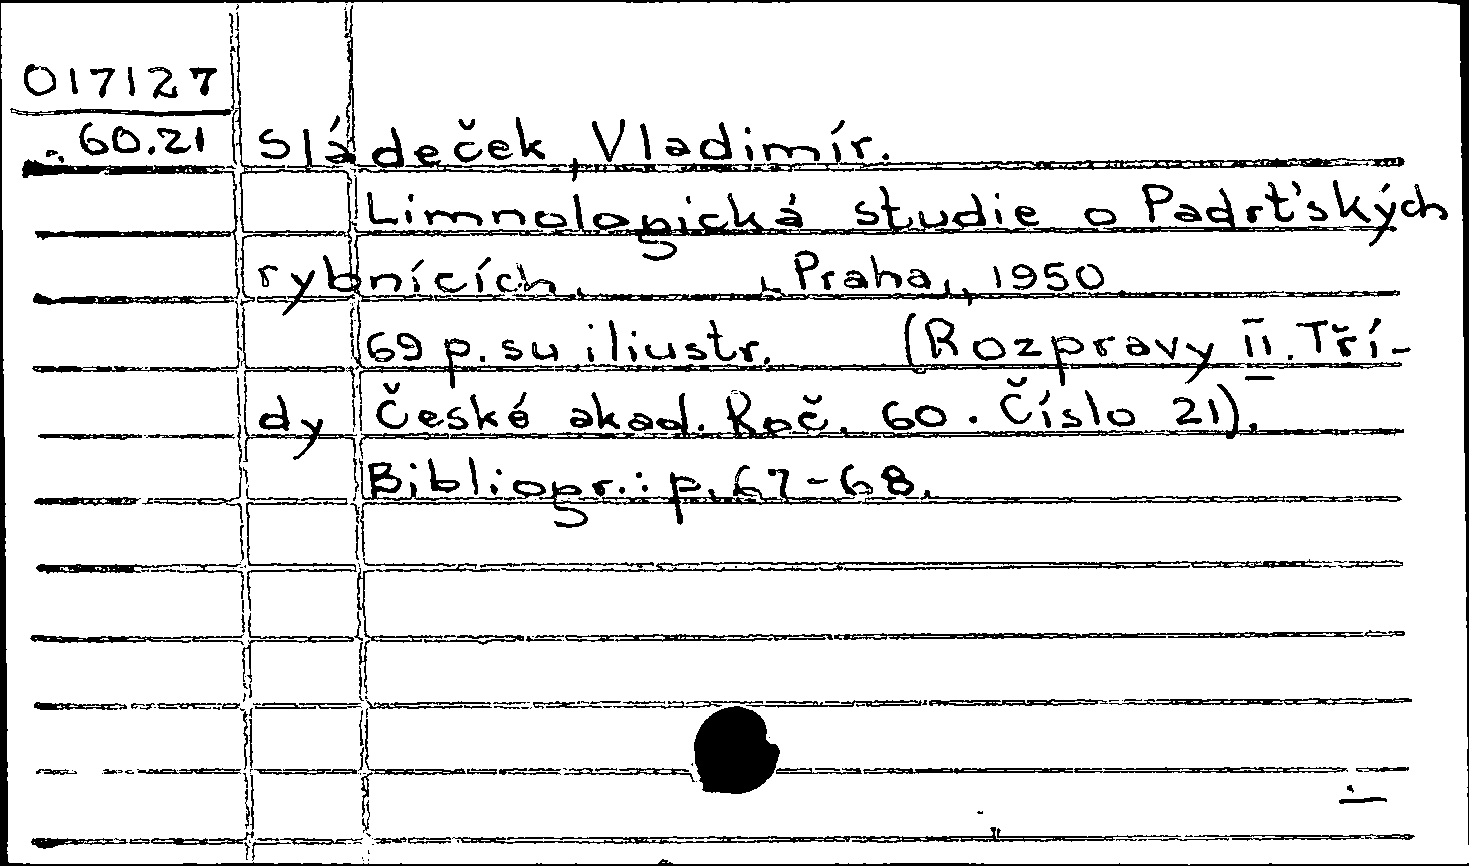 017127
60.21 Sládeček, Vladimír.
Limnologická studie o Padrťských
rybnících. , Praha, , 1950
69 p. su iliustr. (Rozpravy II. Tří-
dy České akad. Roč. 60. Číslo 21).
Bibliogr.: p. 67-68.